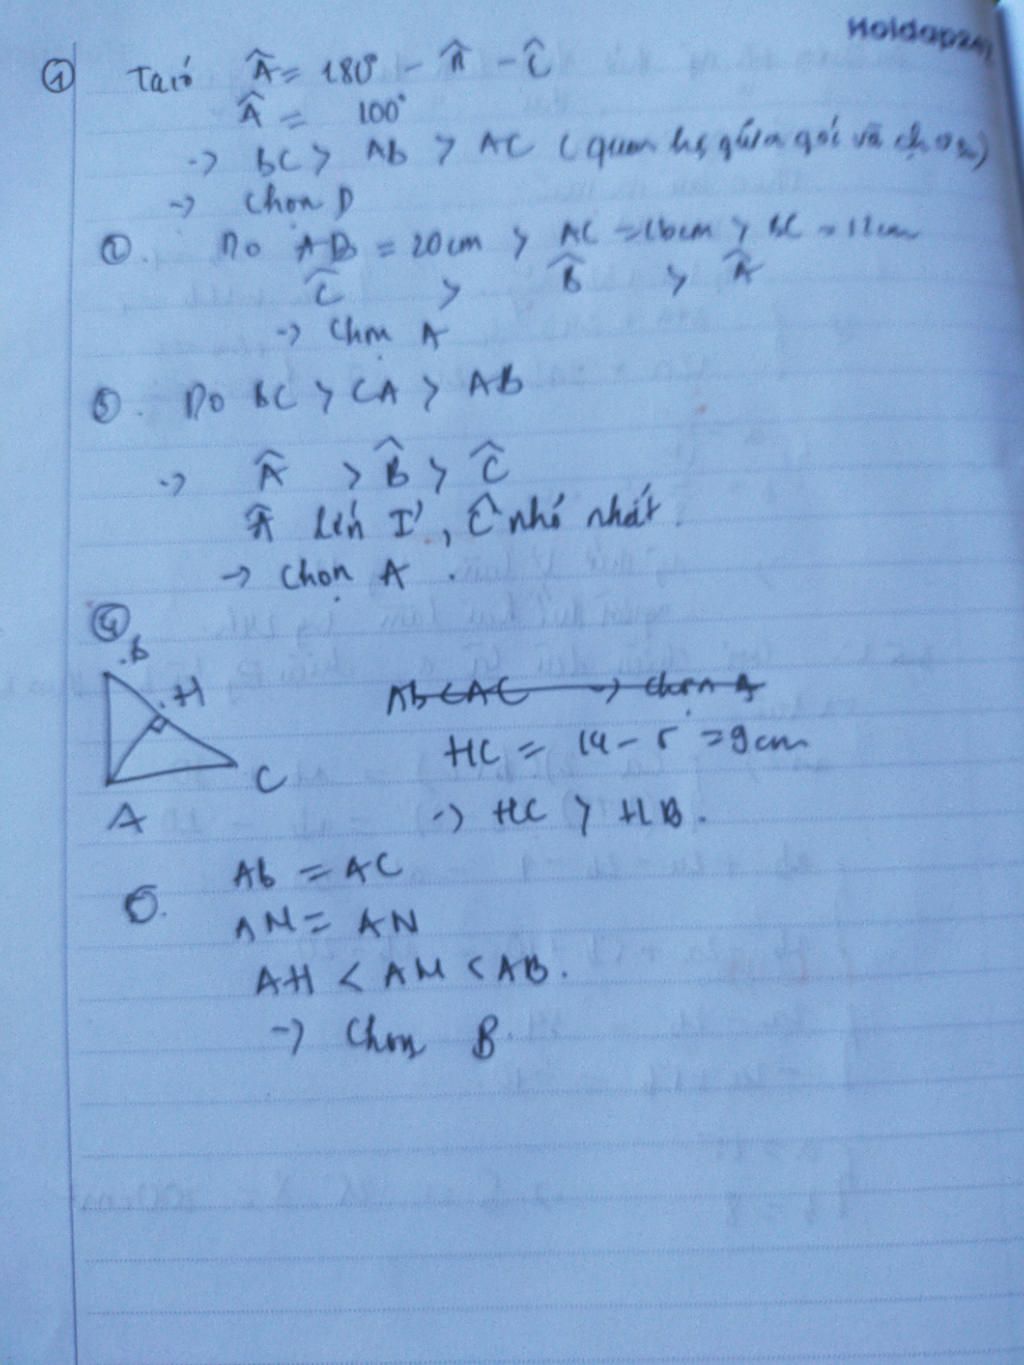 Hoidap247
① Ta có Â = 180° - B̂ - Ĉ
Â = 100°
-> BC > AB > AC (quan hệ giữa góc và cạnh)
-> Chọn D
②. Do AB = 20cm > AC = 16cm > BC = 12cm
Ĉ > B̂ > Â
-> Chọn A
③. Do BC > CA > AB
-> Â > B̂ > Ĉ
Â lớn I', Ĉ nhỏ nhất.
-> Chọn A.
④
B
H
Ab < AC -> chọn A
HC = 14 - 5 = 9cm
C
-> HC > HB.
A
Ab = AC
5.
AM = AN
AH < AM < AB.
-> Chọn B